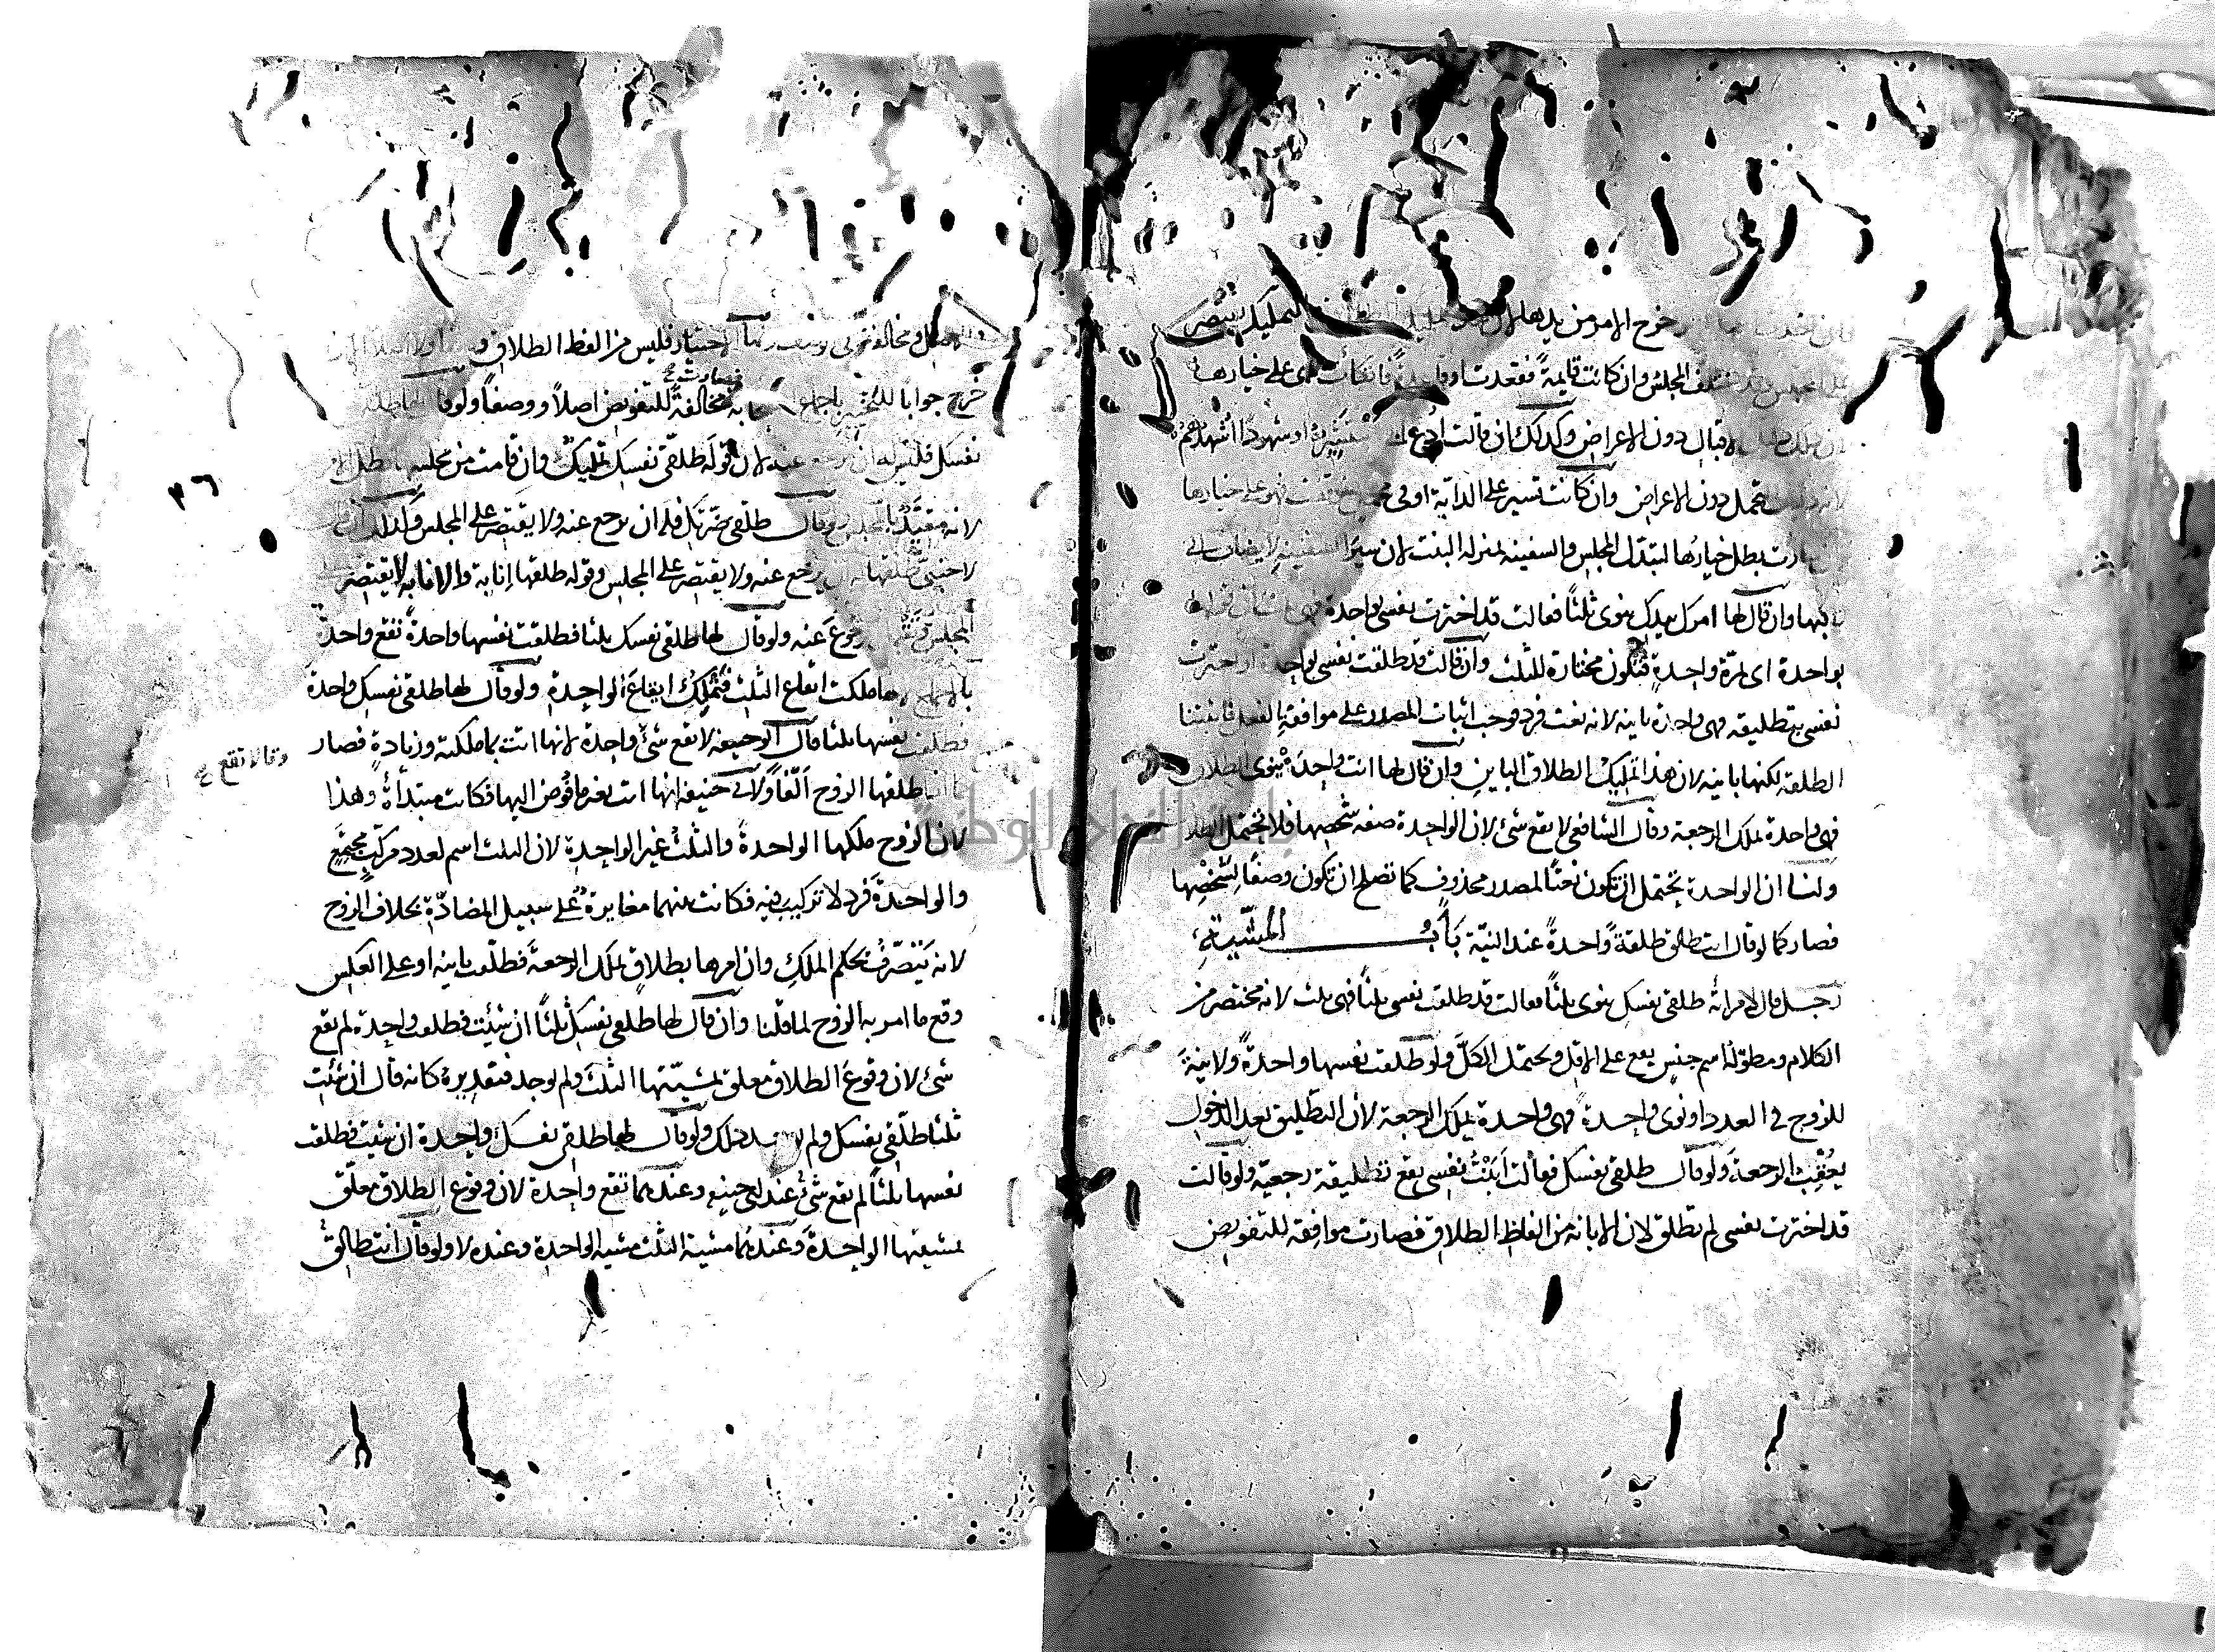 خرج الامر من يدها لان هذا تمليك الطلاق التمليك يقتصر
على المجلس وقد يختلف المجلس وان كانت قايمة فقعدت او قاعدة فاتكأت فهي على خيارها
لان ذلك دليل الاقبال دون الاعراض وكذلك ان قالت ادع لي استشيره او شهودا اشهدهم
تحمل دون الاعراض وان كانت تسير على الدابة او في محمل فوقفت فهي على خيارها
سارت بطل خيارها لتبدل المجلس والسفينة بمنزلة البيت لان سير السفينة لا يضاف الى
راكبها وان قال لها امرك بيدك ينوى ثلثا فقالت قد اخترت نفسي بواحدة فهي ثلث
بواحدة اي بمرة واحدة فتكون مختارة للثلث وان قالت قد طلقت نفسي بواحدة او اخترت
نفسي بتطليقة فهي واحدة باينة لانه نعت فرد فوجب اثبات المصدر على موافقة الفعل فاثبتنا
الطلقة لكنها باينة لان هذا تمليك الطلاق الباين وان قال لها انت واحدة ينوى الطلاق
فهي واحدة يملك الرجعة وقال الشافعي لا يقع شئ لان الواحدة صفة شخصها فلا تحتمل الطلاق
ولنا ان الواحدة يحتمل ان تكون نعتا لمصدر محذوف كما تصلح ان تكون وصفا لشخصها
فصار كما لو قال انت طالق طلقة واحدة عند النية باب المشيية
رجل قال لامراته طلقي نفسك ينوى ثلثا فقالت قد طلقت نفسي ثلثا فهي ثلث لانه مختصر من
الكلام ومطوله اسم جنس يقع على الاقل ويحتمل الكل ولو طلقت نفسها واحدة ولا نية
للزوج في العدد او نوى واحدة فهي واحدة يملك الرجعة لان التطليق بعد الدخول
يعقب الرجعة ولو قال طلقي نفسك فقالت ابنت نفسي يقع تطليقة رجعية ولو قالت
قد اخترت نفسي لم تطلق لان الابانة من الفاظ الطلاق فصارت موافقة للتفويض
الاصل ومخالفة في الاختيار فليس من الفظ الطلاق
خرج جوابا للتخيير باجماع فصارت مخالفة للتفويض اصلا ووصفا ولو قال
نفسك فليس له ان يرجع عنه لان قوله طلقي نفسك تمليك وان قامت من مجلسها بطل
٣٦
لانه مقيد بالمجلس ولو قال طلقي ضرتك فله ان يرجع عنه ولا يقتصر على المجلس وكذلك
لاجنبي طلقها له ان يرجع عنه ولا يقتصر على المجلس وقوله طلقها انابة والانابة لا يقتصر
المجلس الرجوع عنه ولو قال لها طلقي نفسك ثلثا فطلقت نفسها واحدة تقع واحدة
بالاجماع لانها ملكت ايقاع الثلث فتملك ايقاع الواحدة ولو قال لها طلقي نفسك واحدة
فطلقت نفسها ثلثا قال ابو حنيفة لا تقع شئ واحدة لانها اتت بما ملكته وزيادة فصار
وقالا تقع
طلقها الزوج الفا ولابي حنيفة انها اتت بغير ما فوض اليها فكانت مبتدأة وهذا
لان الزوج ملكها الواحدة والثلث غير الواحدة لان الثلث اسم لعدد مركب مجتمع
والواحدة فرد لا تركيب فيه فكانت بينهما مغايرة على سبيل المضادة بخلاف الزوج
لانه يتصرف بحكم الملك وان امرها بطلاق يملك الرجعة فطلقت باينة او على العكس
وقع ما امر به الزوج لما قلنا وان قال لها طلقي نفسك ثلثا ان شئت فطلقت واحدة لم يقع
شئ لان وقوع الطلاق معلق بمشيتها الثلث ولم يوجد فتقديره كانه قال ان شئت
ثلثا طلقي نفسك ولم ذلك ولو قال لها طلقي نفسك واحدة ان شئت فطلقت
نفسها ثلثا لم يقع شئ عند ابي حنيفة وعندهما تقع واحدة لان وقوع الطلاق معلق
بمشيتها الواحدة وعندهما مشية الثلث مشية الواحدة وعنده لا ولو قال انت طالق